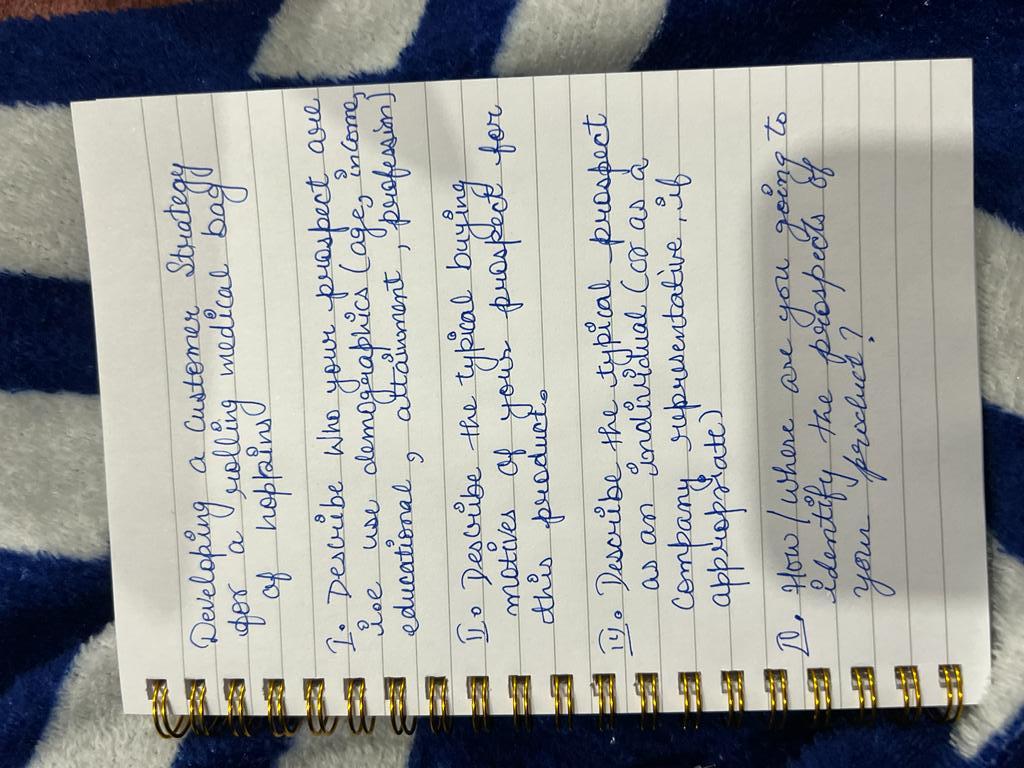 Developing a Customer Strategy
for a rolling medical bag
of hopkins
I. Describe who your prospect are
i.e use demographics (age, income,
educational, attainment, profession)
II. Describe the typical buying
motives of your prospect for
this product.
III. Describe the typical prospect
as an individual (or as a
company representative, if
appropriate)
IV. How/where are you going to
identify the prospects of
your product?